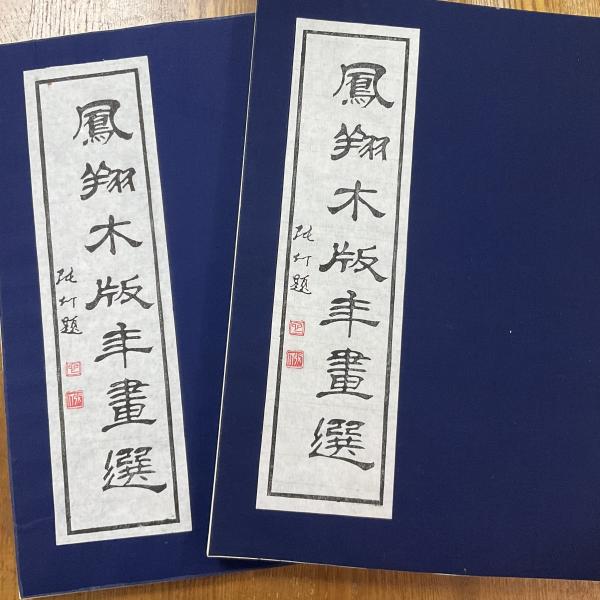 鳳翔木版年畫選
張仃題
鳳翔木版年畫選
張仃題